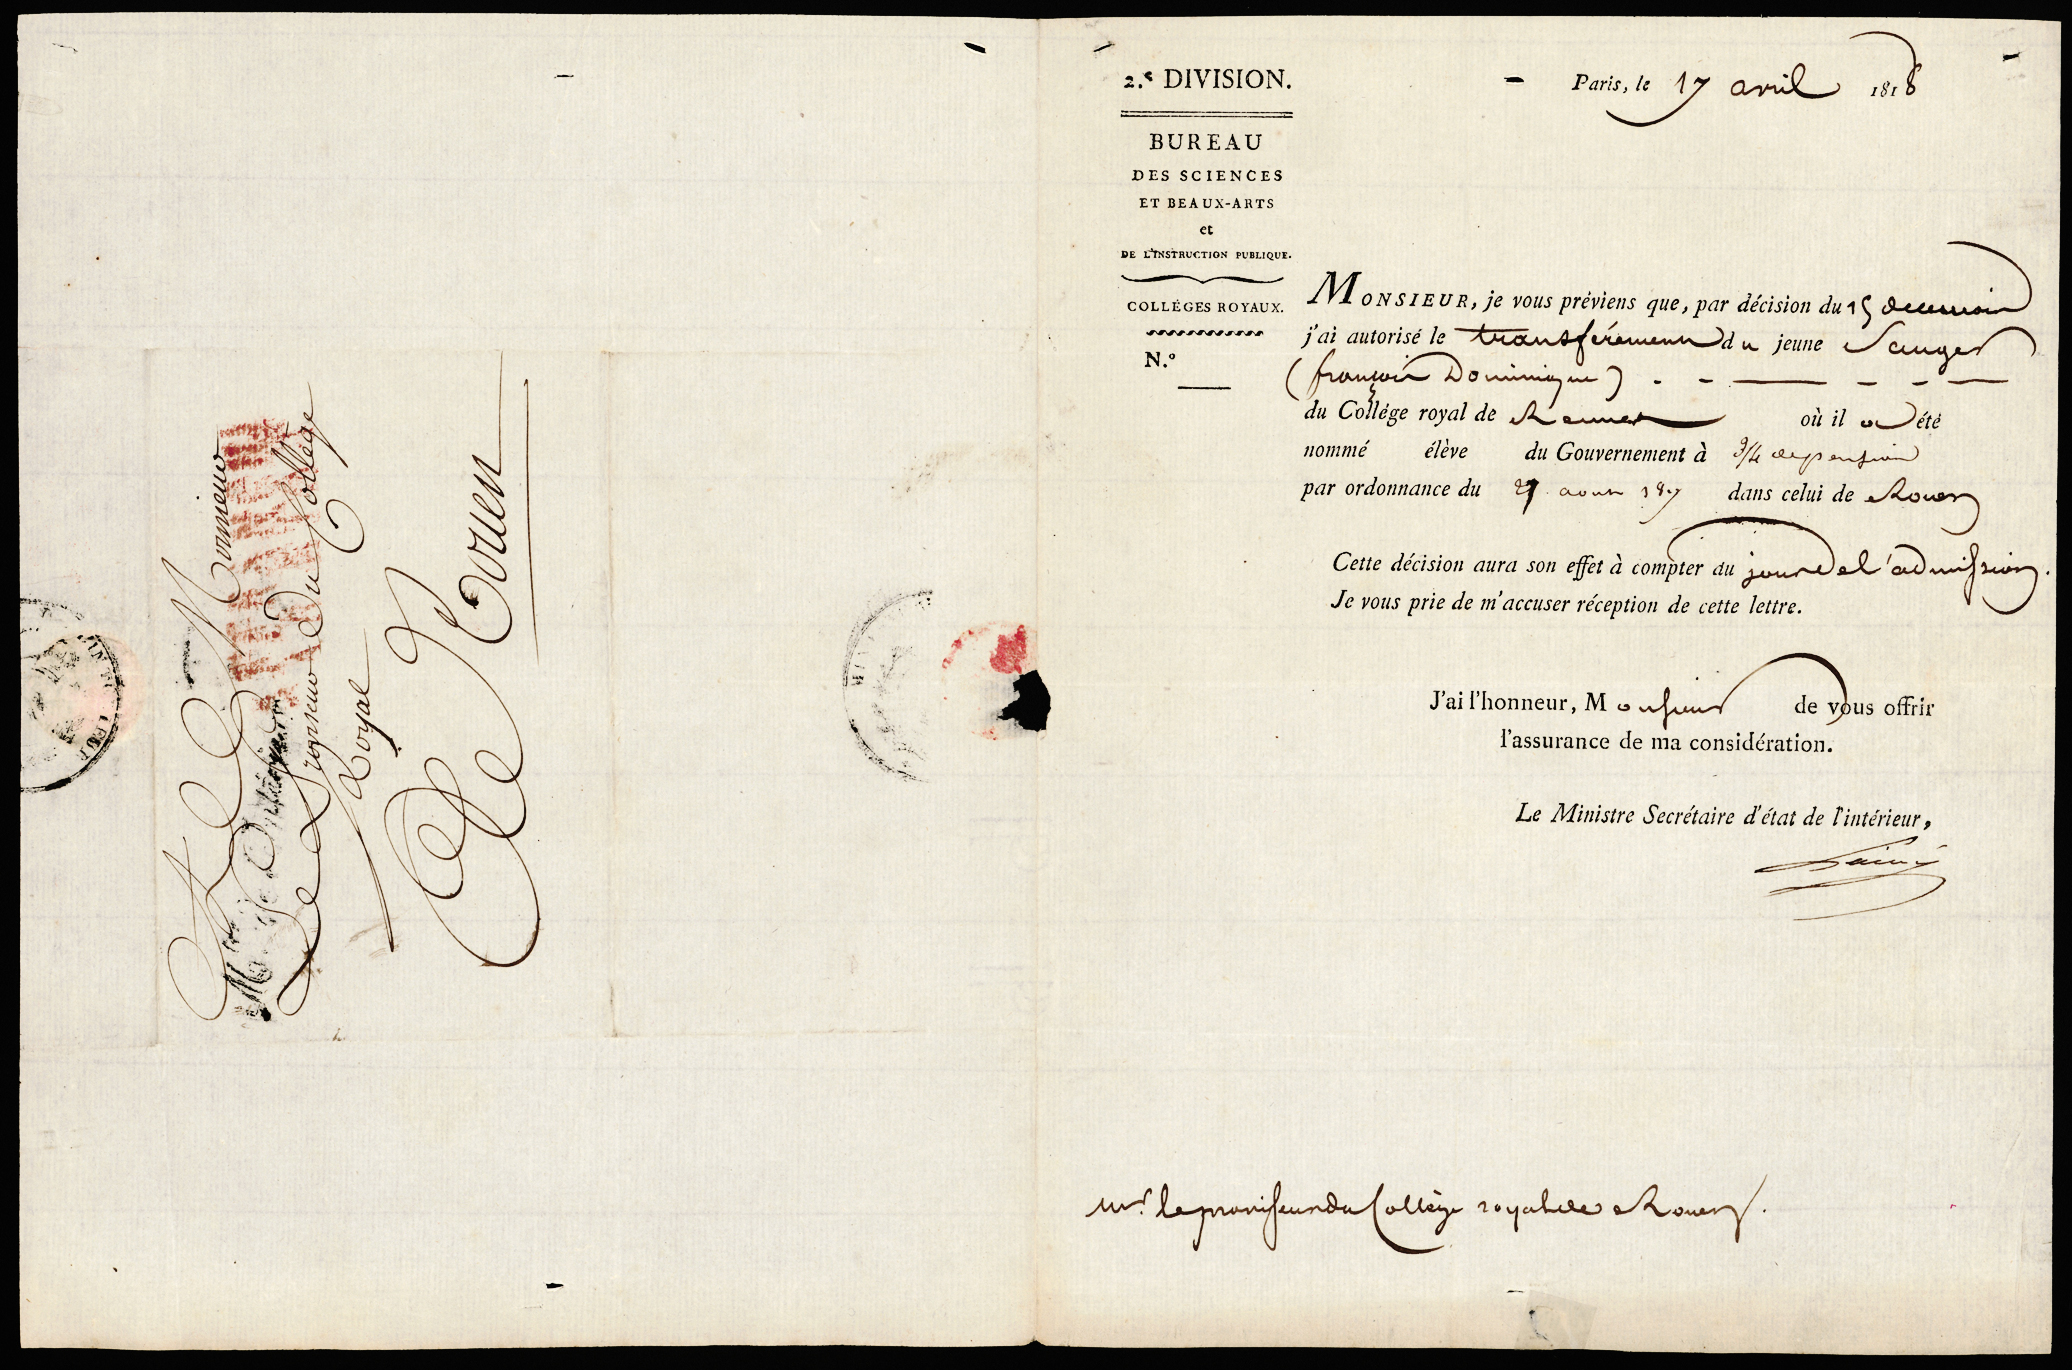 A Monsieur
Monsieur
Le Proviseur Du Collége
Royal
De Rouen
2.e DIVISION.
BUREAU
DES SCIENCES
ET BEAUX-ARTS
et
DE L'INSTRUCTION PUBLIQUE.
COLLÉGES ROYAUX.
N.º
Paris, le 17 avril 1818
MONSIEUR, je vous préviens que, par décision du 15
j'ai autorisé le transférement du jeune Sauger
(françois Dominique)
du Collége royal de Rennes où il a été
nommé élève du Gouvernement à 3/4 de pension
par ordonnance du 27 aout 1817 dans celui de Rouen
Cette décision aura son effet à compter du jour de l'admission.
Je vous prie de m'accuser réception de cette lettre.
J'ai l'honneur, Monsieur de vous offrir
l'assurance de ma considération.
Le Ministre Secrétaire d'état de l'intérieur,
Lainé
Mr. le proviseur du Collège royal de Rouen.